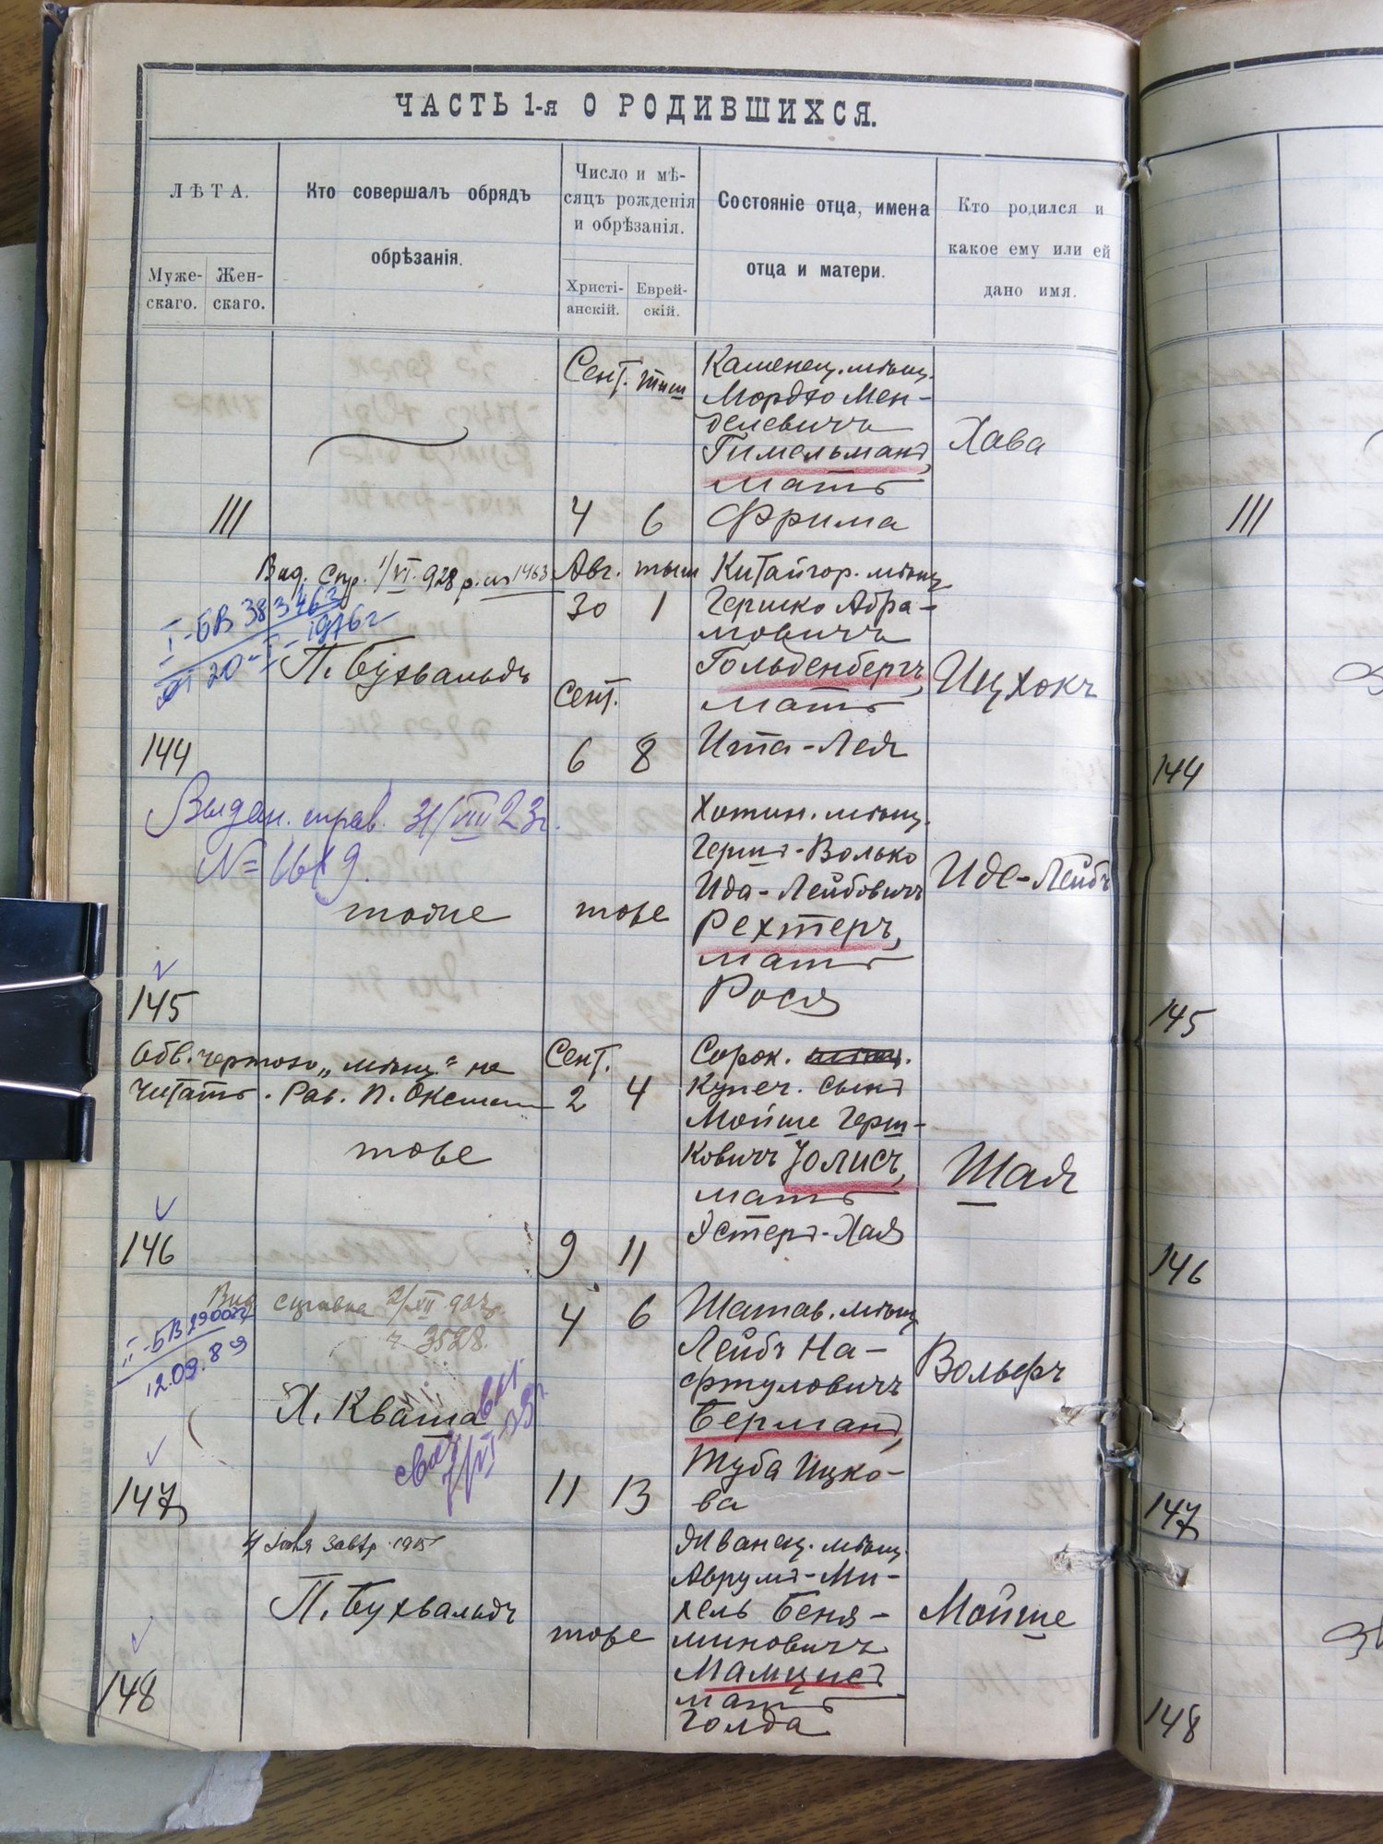 ЧАСТЬ 1-я О РОДИВШИХСЯ.
ЛѢТА.
Муже-
скаго.
Жен-
скаго.
Кто совершалъ обрядъ
обрѣзанія.
Число и мѣ-
сяцъ рожденія
и обрѣзанія.
Христі-
анскій.
Еврей-
скій.
Состояніе отца, имена
отца и матери.
Кто родился и
какое ему или ей
дано имя.
Сент. тиш
Каменец. мѣщ.
Мордко Мен-
делевичъ
Гимельманъ,
мать
Фрима
Хава
111
4 6
111
Вид. Спр. 1/VI 928 р. за 1463
I-БВ 383463
от 20 1976г
П. Бухвальдъ
Авг. тиш
30 1
Сент.
6 8
Китайгор. мѣщ.
Гершко Абра-
мовичъ
Гольденбергъ,
мать
Ита-Лея
Ицхокъ
144
144
Выдан. справ. 31/VIII 23г.
тоже
тоже
Хотин. мѣщ.
Гершъ-Волько
Ида-Лейбовичъ
Рехтеръ,
мать
Рося
Иде-Лейбъ
145
145
Обв. чертою „мѣщ.“ не
читать. Рав. П. Оксман
тоже
Сент.
2 4
9 11
Сорок. мѣщ.
Купеч. сынъ
Мойше Герш-
ковичъ Іолисъ,
мать
Эстеръ-Хая
Шая
146
146
Вид справка 2/XII
ч 3528.
I-БВ 290024
12.09.89
Х. Кваша
4 6
11 13
Шатав. мѣщ
Лейбъ На-
фтуловичъ
Берманъ,
Туба Ицко-
ва
Вольфъ
147
147
П. Бухвальдъ
тоже
Жванец. мѣщ.
Аврумъ-Ми-
хель Беня-
миновичъ
Мамцисъ
мать
Голда
Мойше
148
148